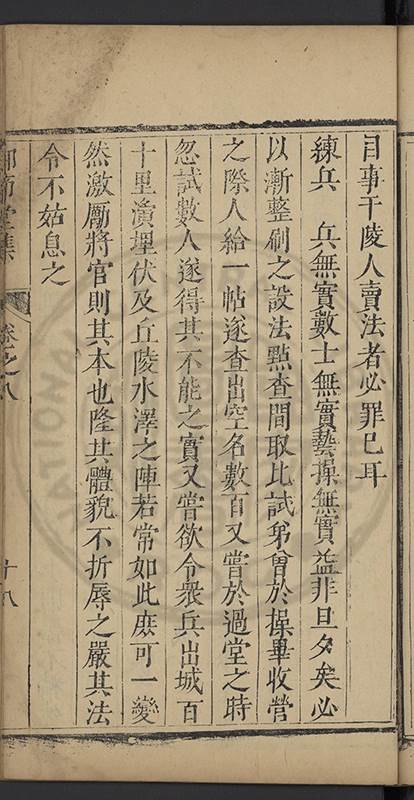 司事干陵人賣法者必罪已耳
練兵　兵無實數士無實藝操無實益非旦夕矣必
以漸整刷之設法㸃查間取比試弟曽於操畢收營
之際人給一帖遂查出空名數百又嘗於過堂之時
忽試數人遂得其不能之實又嘗欲令衆兵出城百
十里演埋伏及丘陵水澤之陣若常如此庶可一變
然激厲將官則其本也隆其體貌不折辱之嚴其法
令不姑息之
堂集
卷之八
十八